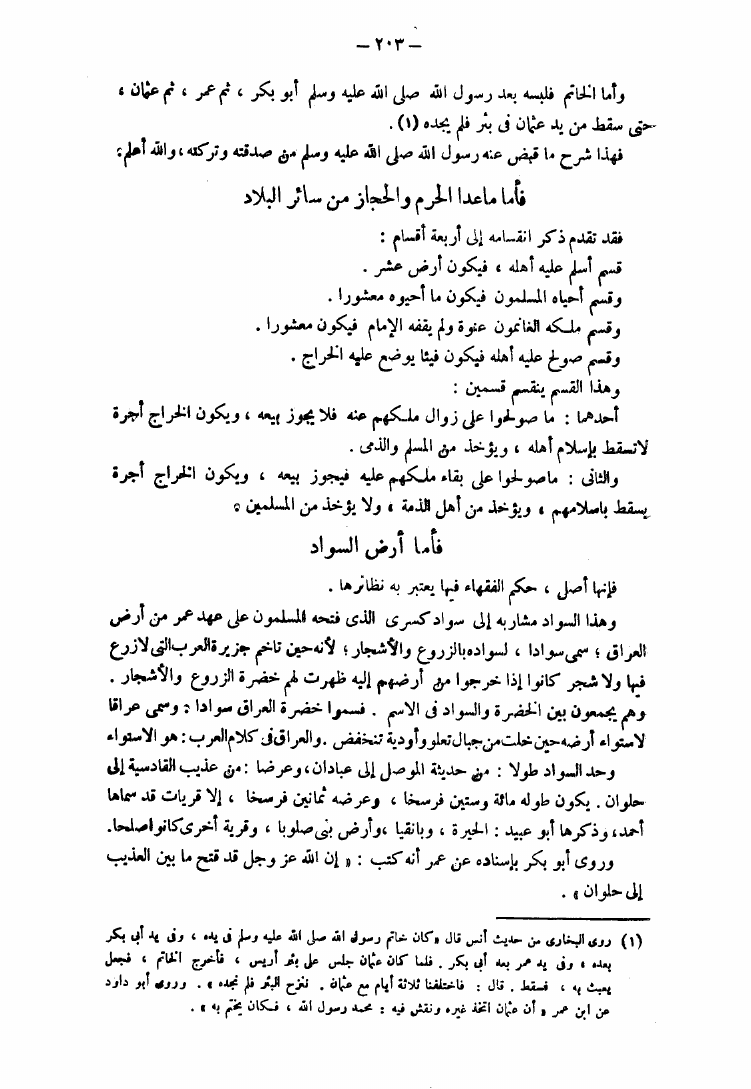 — ٢٠٣ —
وأما الخاتم فلبسه بعد رسول الله صلى الله عليه وسلم أبو بكر ، ثم عمر ، ثم عثمان ،
حتى سقط من يد عثمان فى بئر فلم يجده (١) .
فهذا شرح ما قبض عنه رسول الله صلى الله عليه وسلم من صدقته وتركته ، والله أعلم .
فأما ماعدا الحرم والحجاز من سائر البلاد
فقد تقدم ذكر انقسامه إلى أربعة أقسام :
قسم أسلم عليه أهله ، فيكون أرض عشر .
وقسم أحياه المسلمون فيكون ما أحيوه معشورا .
وقسم ملكه الغانمون عنوة ولم يقفه الإمام فيكون معشورا .
وقسم صولح عليه أهله فيكون فيئا يوضع عليه الخراج .
وهذا القسم ينقسم قسمين :
أحدهما : ما صولحوا على زوال ملكهم عنه فلا يجوز بيعه ، ويكون الخراج أجرة
لاتسقط بإسلام أهله ، ويؤخذ من المسلم والذمى .
والثانى : ماصولحوا على بقاء ملكهم عليه فيجوز بيعه ، ويكون الخراج أجرة
يسقط باسلامهم ، ويؤخذ من أهل الذمة ، ولا يؤخذ من المسلمين .
فأما أرض السواد
فإنها أصل ، حكم الفقهاء فيها يعتبر به نظائرها .
وهذا السواد مشار به إلى سواد كسرى الذى فتحه المسلمون على عهد عمر من أرض
العراق ؛ سمى سوادا ، لسواده بالزروع والأشجار ؛ لأنه حين تاخم جزيرة العرب التى لازرع
فيها ولا شجر كانوا إذا خرجوا من أرضهم إليه ظهرت لهم خضرة الزروع والأشجار .
وهم يجمعون بين الخضرة والسواد فى الاسم . فسموا خضرة العراق سوادا ؛ وسمى عراقا
لاستواء أرضه حين خلت من جبال تعلو وأودية تنخفض . والعراق فى كلام العرب : هو الاستواء
وحد السواد طولا : من حديثة الموصل إلى عبادان ، وعرضا : من عذيب القادسية إلى
حلوان . يكون طوله مائة وستين فرسخا ، وعرضه ثمانين فرسخا ، إلا قريات قد سماها
أحمد ، وذكرها أبو عبيد : الحيرة ، وبانقيا ، وأرض بنى صلوبا ، وقرية أخرى كانوا صلحا .
وروى أبو بكر بإسناده عن عمر أنه كتب : « إن الله عز وجل قد فتح ما بين العذيب
إلى حلوان » .
(١) روى البخارى من حديث أنس قال « كان خاتم رسول الله صلى الله عليه وسلم فى يده ، وفى يد أبى بكر
بعده ، وفى يد عمر بعد أبى بكر . فلما كان عثمان جلس على بئر أريس ، فأخرج الخاتم ، فجعل
يعبث به ، فسقط . قال : فاختلفنا ثلاثة أيام مع عثمان . ننزح البئر فلم نجده » . وروى أبو داود
عن ابن عمر « أن عثمان اتخذ غيره ونقش فيه : محمد رسول الله ، فكان يختم به » .